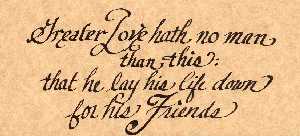 Greater Love hath no man
than this:
that he lay his life down
for his Friends